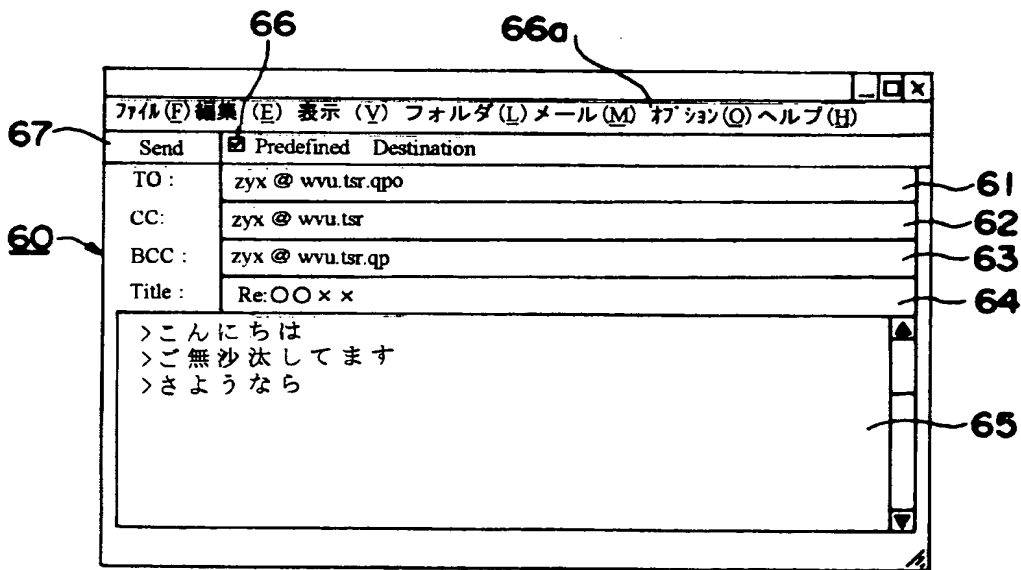 66 66a
ファイル(F) 編集 (E) 表示 (V) フォルダ(L) メール(M) オプション(O) ヘルプ(H)
67 Send Predefined Destination
TO : zyx @ wvu.tsr.qpo 61
CC: zyx @ wvu.tsr 62
60
BCC : zyx @ wvu.tsr.qp 63
Title : Re:○○×× 64
>こんにちは
>ご無沙汰してます
>さようなら
65